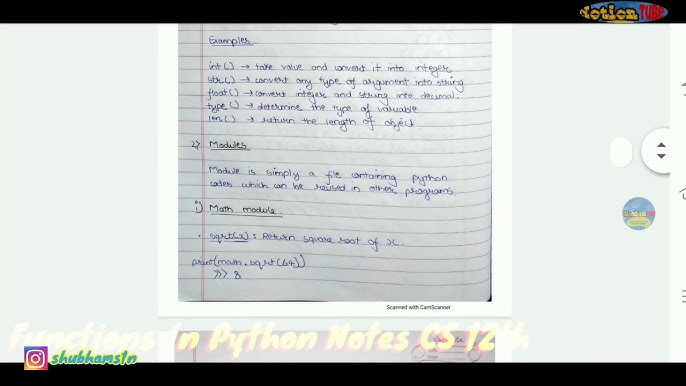 Notion TUBE
Examples.
int() → take value and convert it into integer
str() → convert any type of argument into string
float() → convert integer and string into decimal.
type() → determine the type of variable
len() → return the length of object.
2) Modules
Module is simply a file containing python
codes which can be reused in other programs.
i) Math module:
• sqrt(x): Return square root of x.
print(math.sqrt(64))
>>> 8
Scanned with CamScanner
Functions In Python Notes CS 12th
shubhams1n